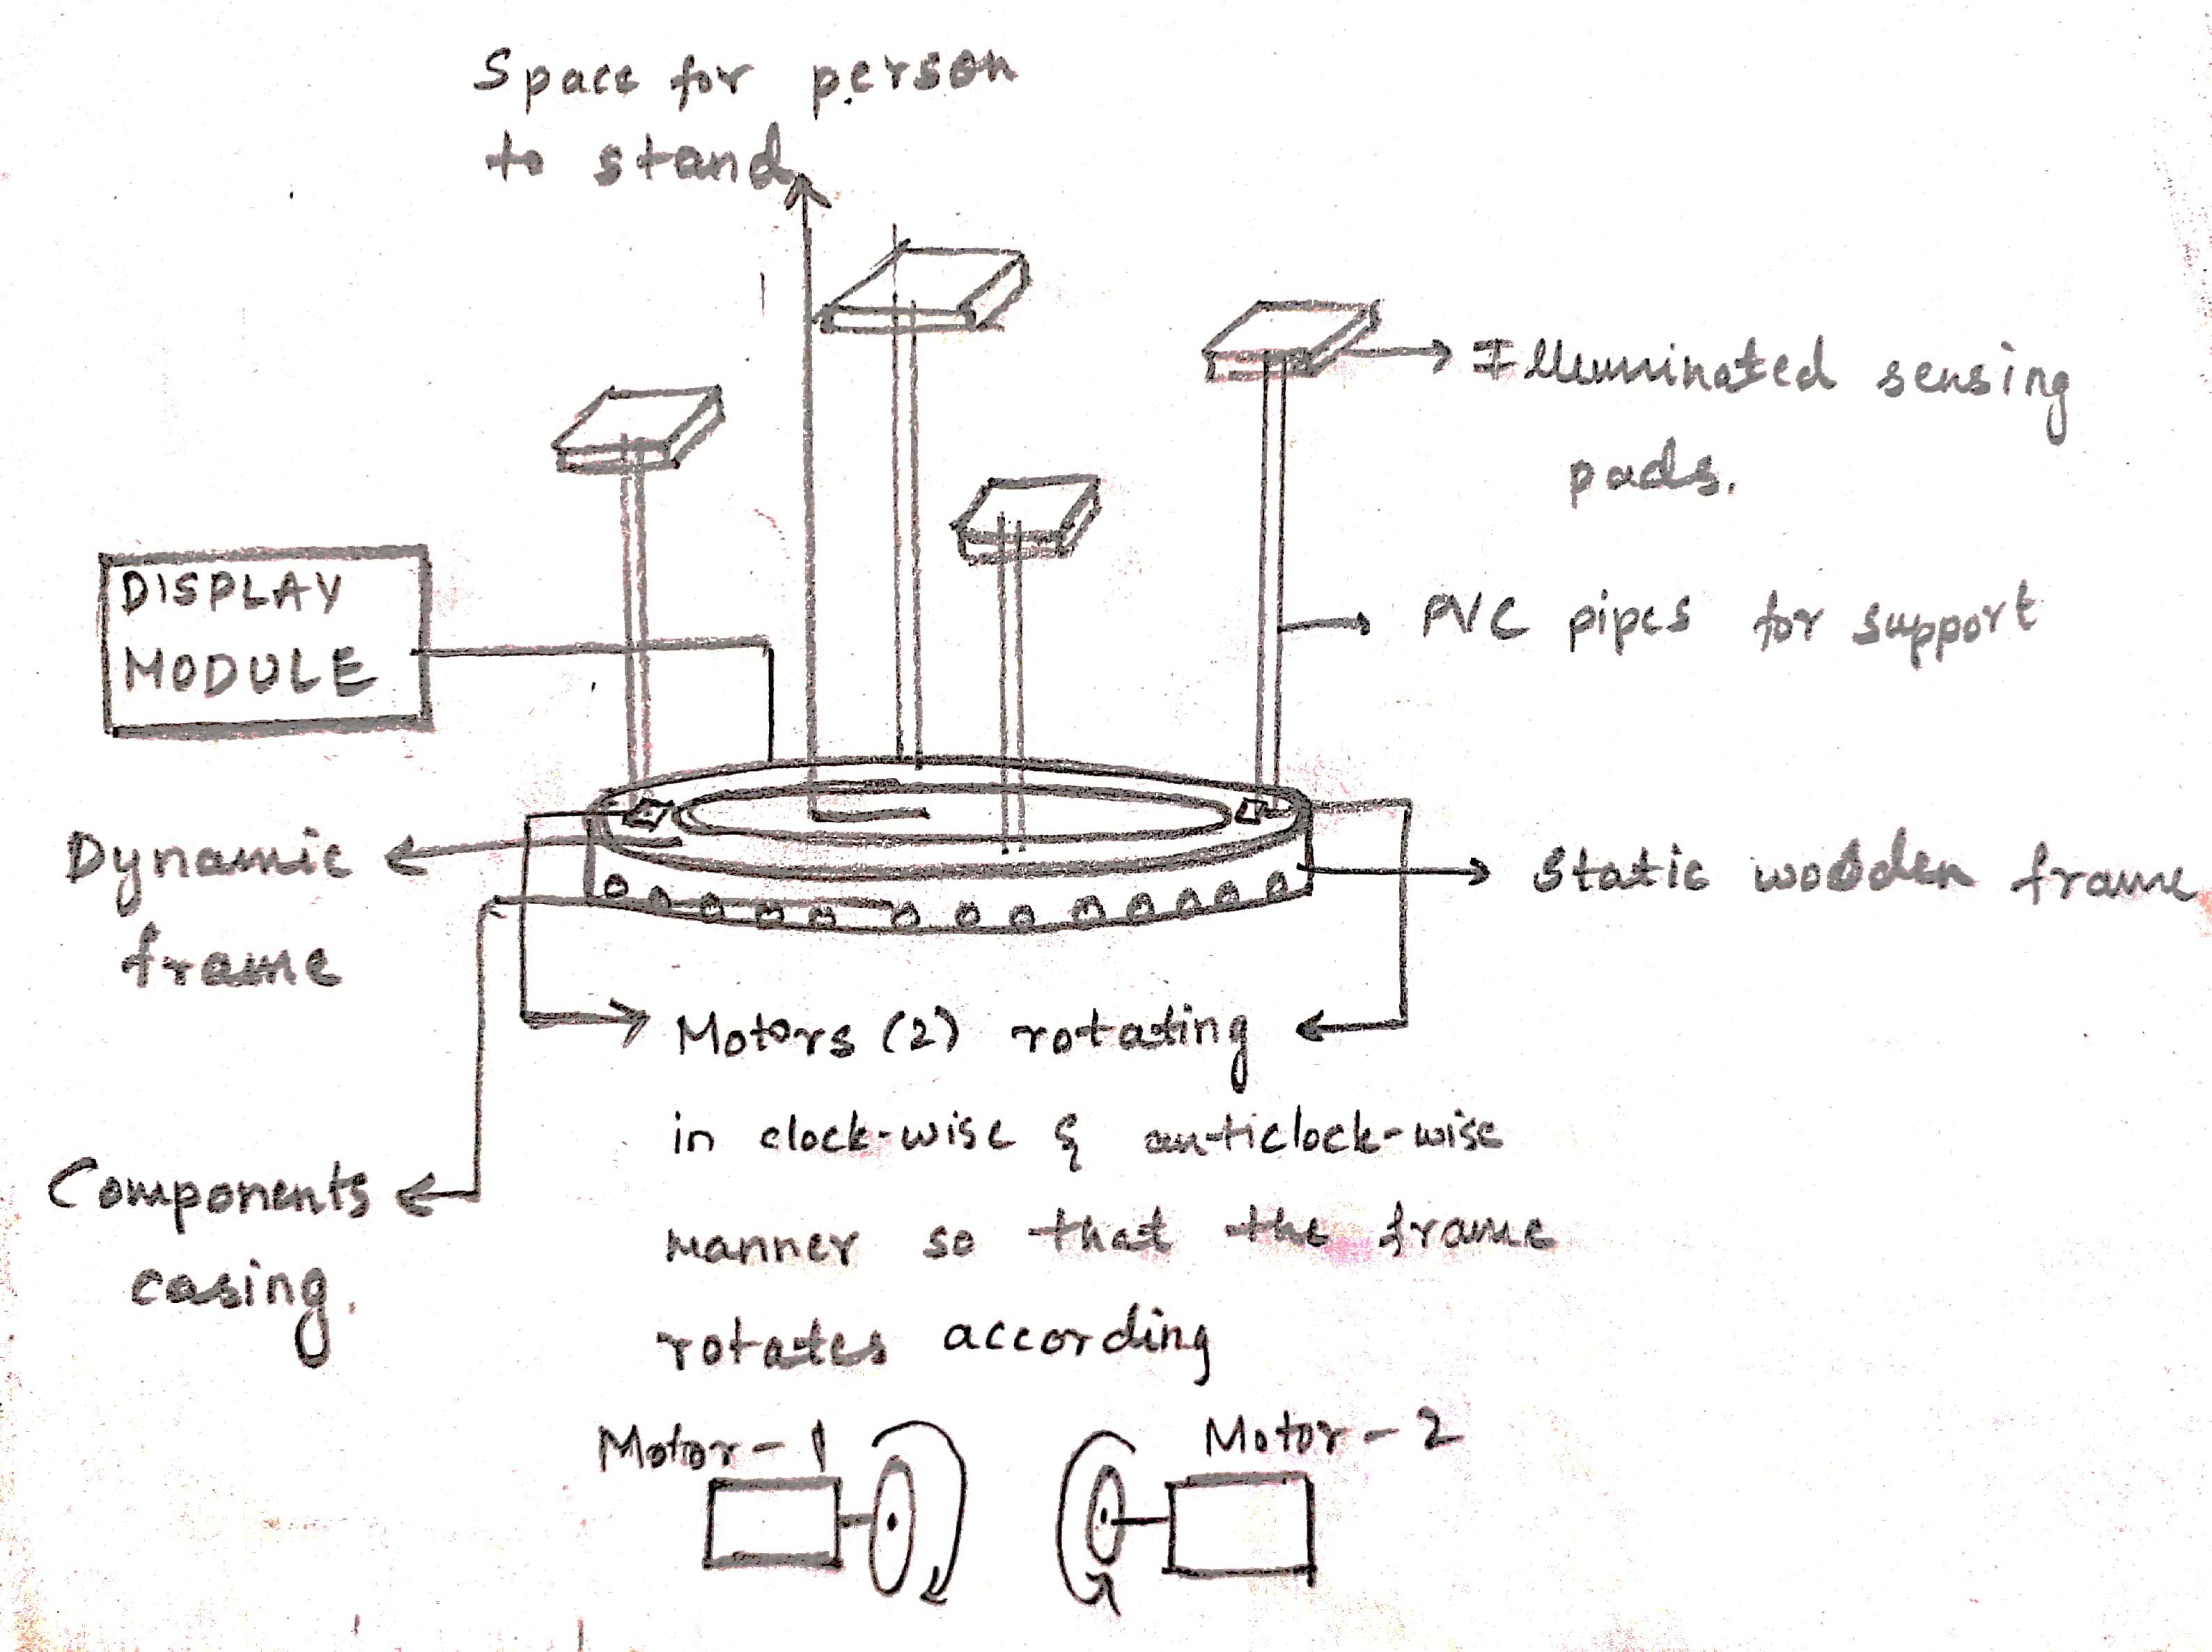 Space for person
to stand
Illuminated sensing
pads.
DISPLAY
MODULE
PVC pipes for support
Dynamic
frame
Static wooden frame
Motors (2) rotating
in clock-wise & anticlock-wise
manner so that the frame
rotates according
Components
casing.
Motor-1
Motor-2